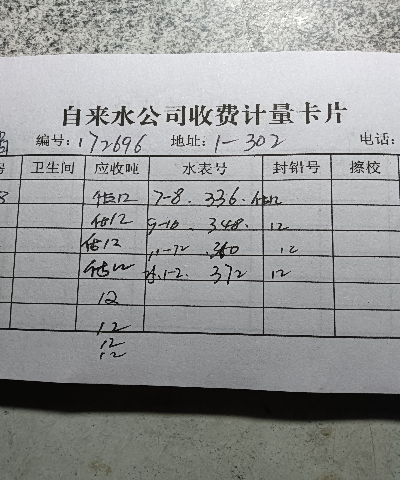 自来水公司收费计量卡片
编号: 172696 地址: 1-302 电话:
卫生间 应收吨 水表号 封铅号 擦校
估12 7-8. 336. 估12
估12 9-10. 348. 12
估12 11-12 360 12
估12 1-2. 372 12
12
12
12
12